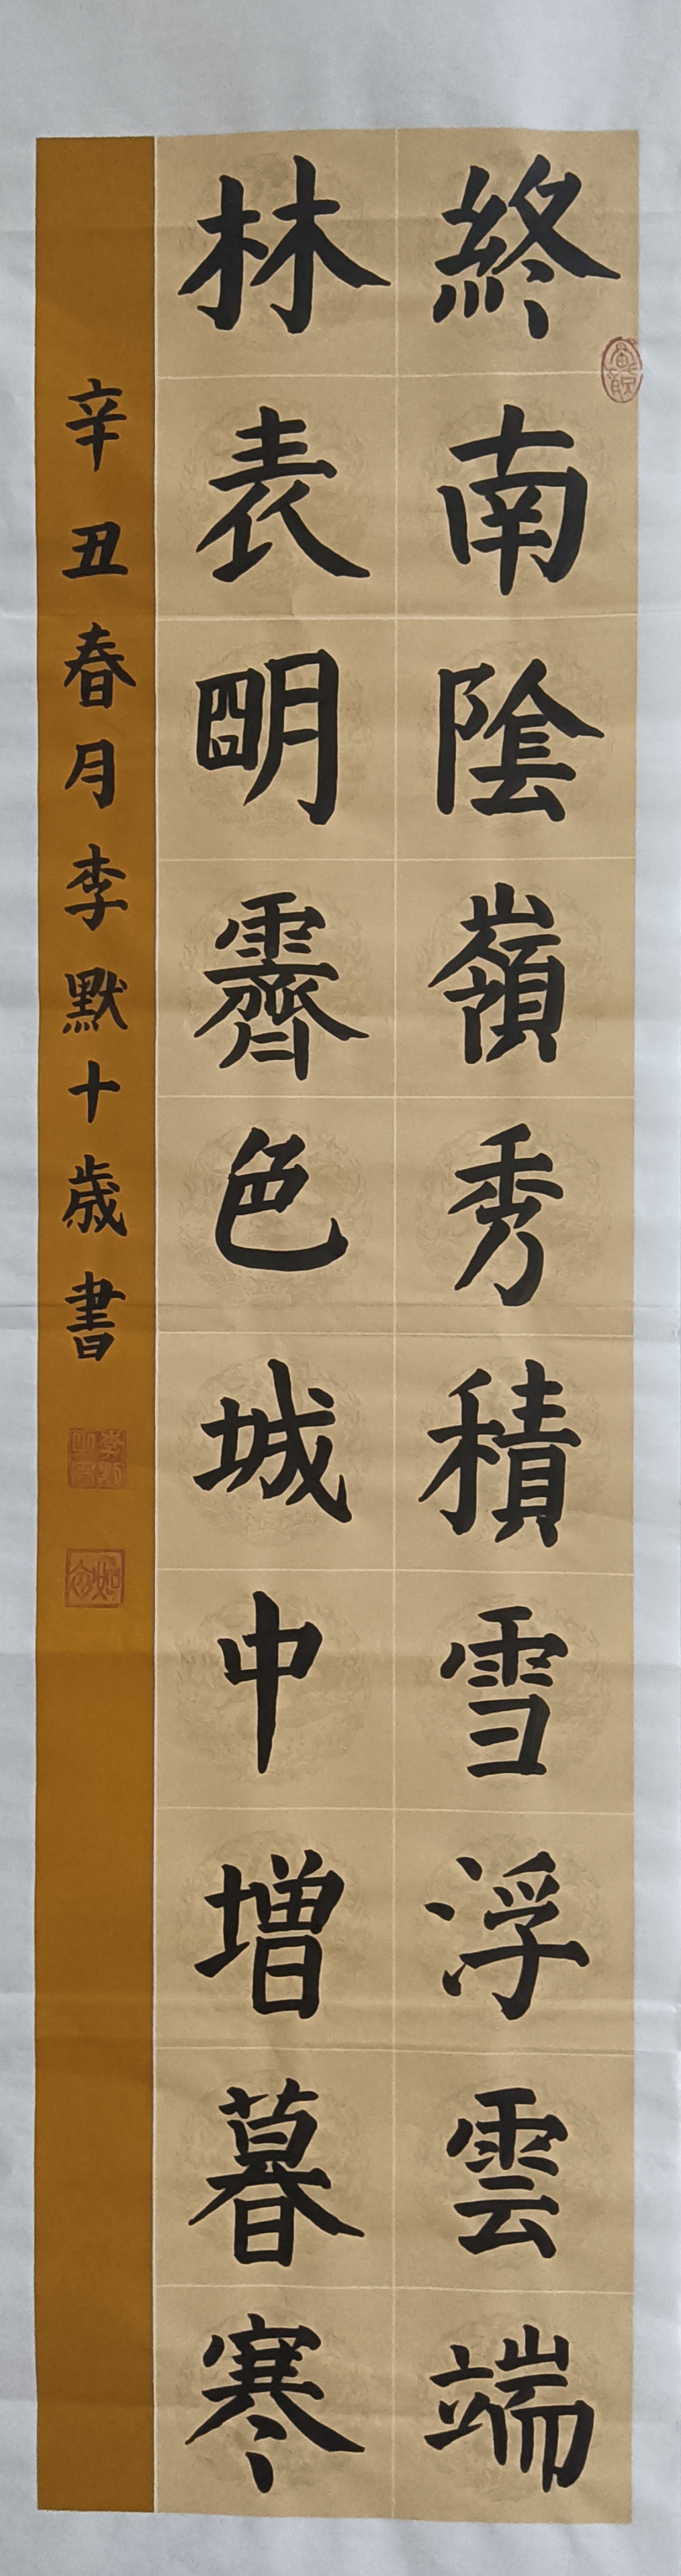 終南陰嶺秀積雪浮雲端
林表明霽色城中增暮寒
辛丑春月李默十歲書